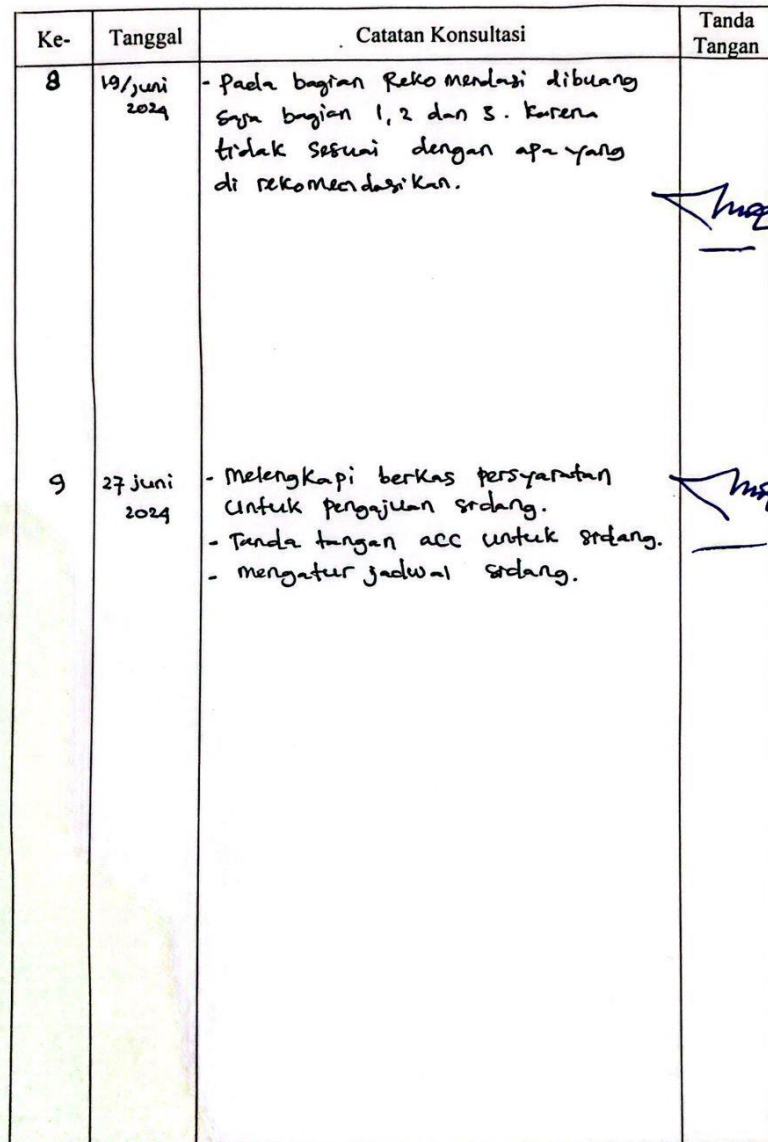 Ke- Tanggal Catatan Konsultasi Tanda Tangan
8 19/juni 2024 - Pada bagian Rekomendasi dibuang
saja bagian 1, 2 dan 3. Karena
tidak sesuai dengan apa yang
di rekomendasikan.
9 27 juni 2024 - Melengkapi berkas persyaratan
untuk pengajuan sidang.
- Tanda tangan acc untuk sidang.
- mengatur jadwal sidang.